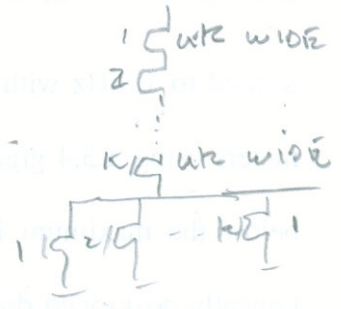 1 WK WIDE
2
K WK WIDE
1 2 K 1